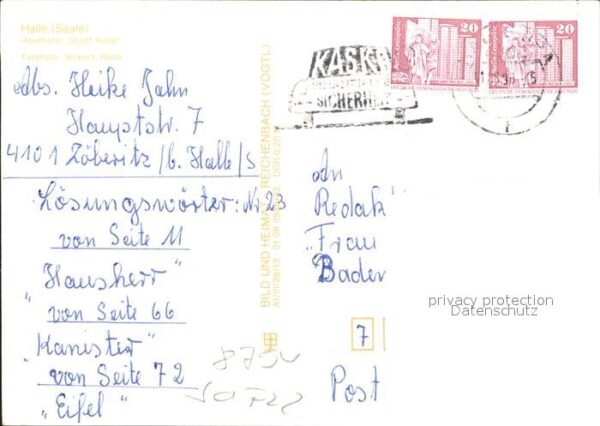 Halle (Saale)
Interhotel „Stadt Halle"
Farbfoto: Sickert, Halle
Abs. Heike Jahn
Hauptstr. 7
4101 Zöberitz / b. Halle/S
Lösungswörter: Nr 23
von Seite 11
„Hausherr"
von Seite 66
„Kanister"
von Seite 72
„Eifel"
BILD UND HEIMAT REICHENBACH (VOGTL)
KASKO
SICHERN
20
20
An
Redak
„Frau
Bader
privacy protection
Datenschutz
7
Post